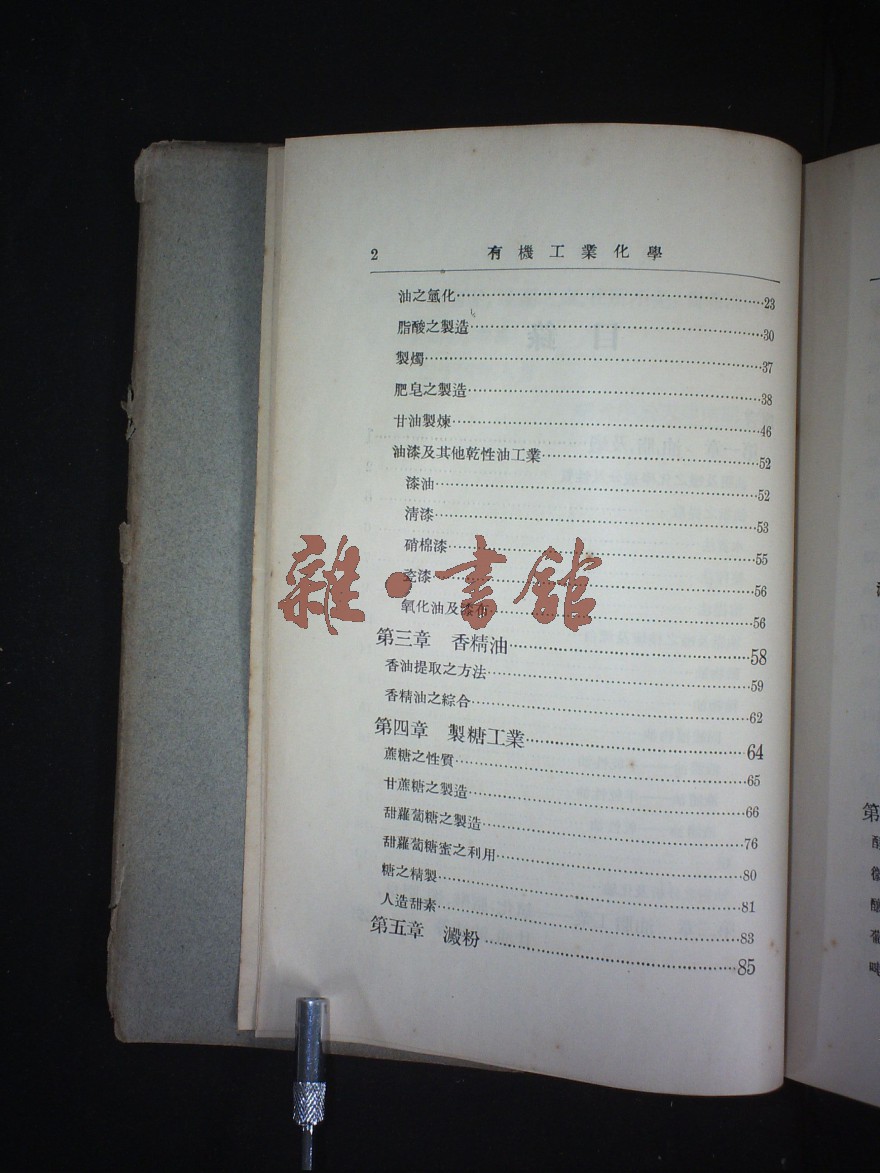 2 有機工業化學
油之氫化……23
脂酸之製造……30
製燭……37
肥皂之製造……38
甘油製煉……46
油漆及其他乾性油工業……52
漆油……52
清漆……53
硝棉漆……55
瓷漆……56
氧化油及漆布……56
第三章 香精油……58
香油提取之方法……59
香精油之綜合……62
第四章 製糖工業……64
蔗糖之性質……65
甘蔗糖之製造……66
甜蘿蔔糖之製造……76
甜蘿蔔糖蜜之利用……80
糖之精製……81
人造甜素……83
第五章 澱粉……85
雜·書館
第